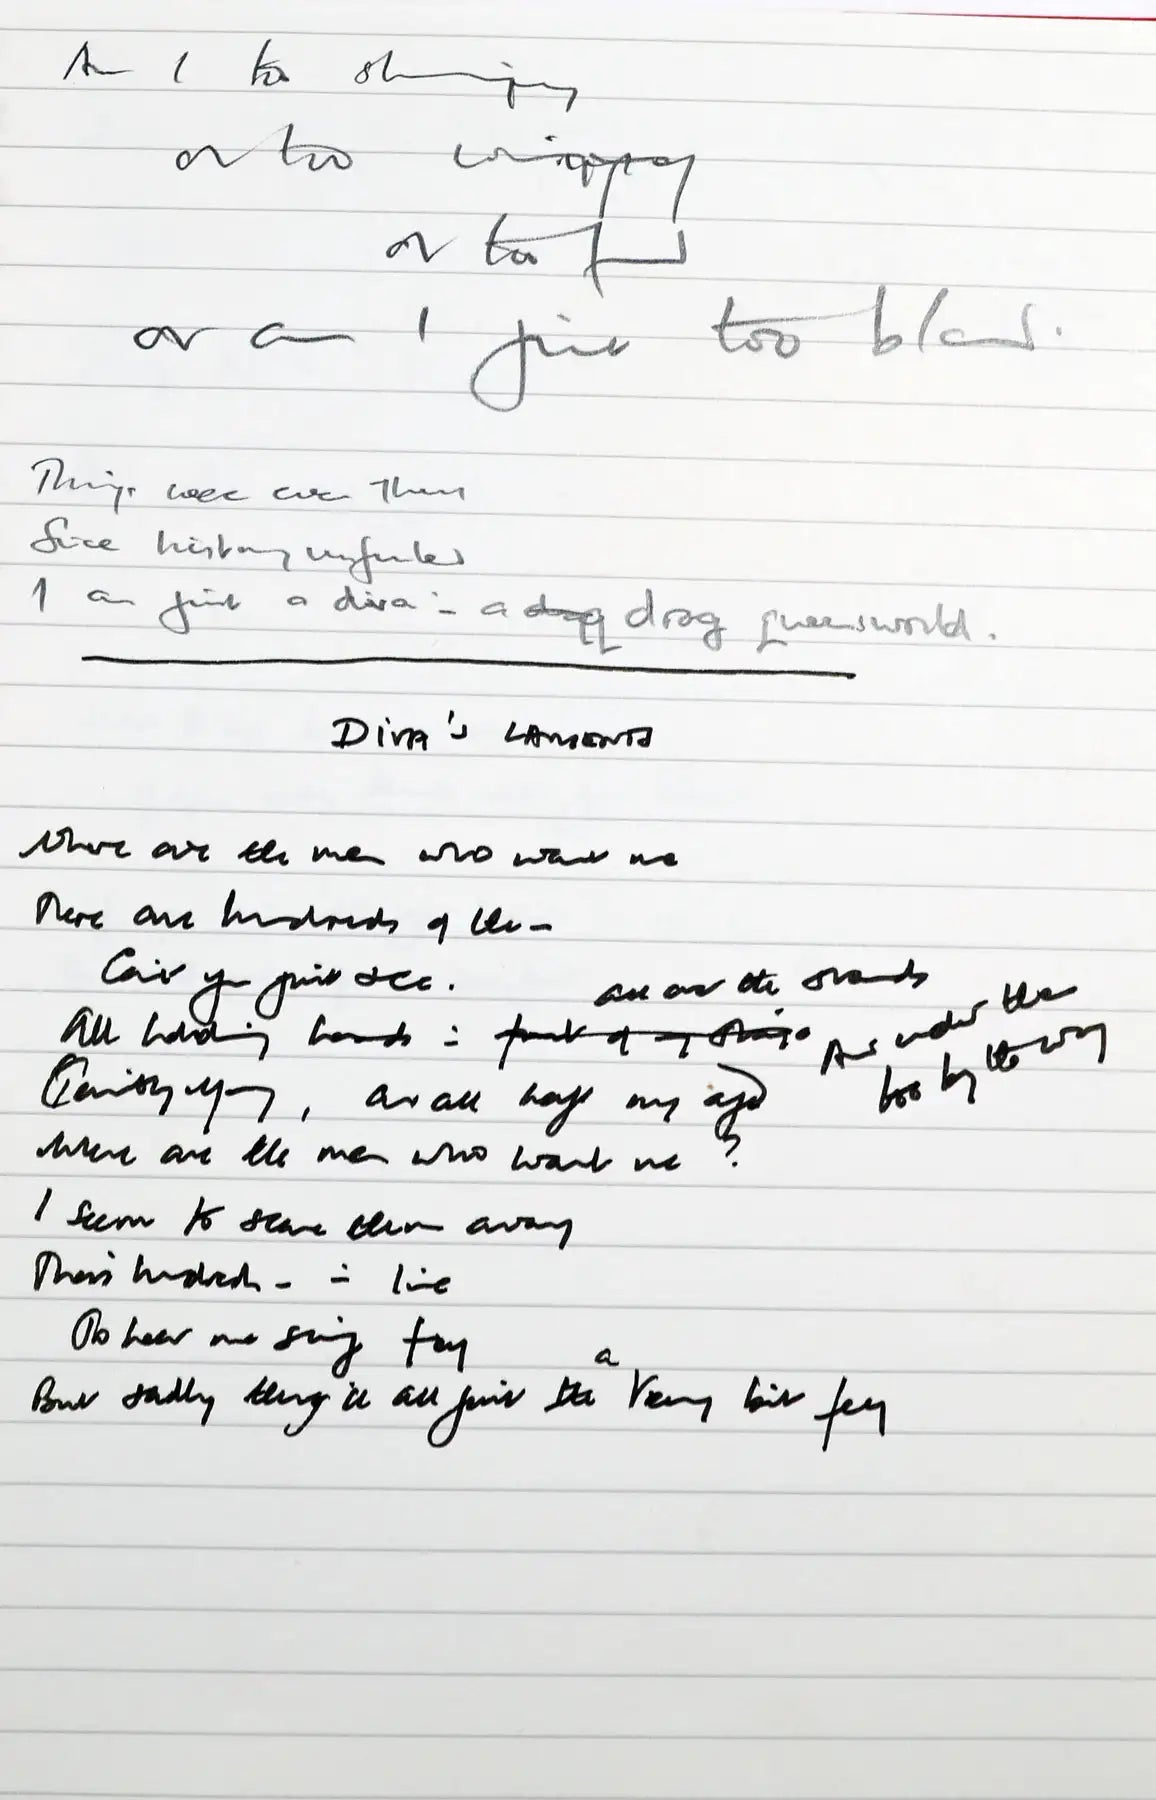 Am I too skimpy
or too wimpy
or too fund
or am I just too bland.
Things were ever Thus
Since history unfurled
I am just a diva in a drag queens world.
DIVA'S LAMENTS
Where are the men who want me
There are hundreds of them
Can't you just see.
all over the stands
All holding hands in front of my stage
And under them too by the way
(Terribly young, or all half my age)
Where are the men who want me?
I seem to scare them away
There's hundreds in line
To hear me sing
But sadly they're all just a Teeny bit fey